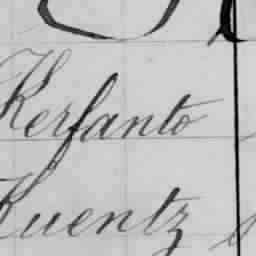 Kerfanto
Kuentz